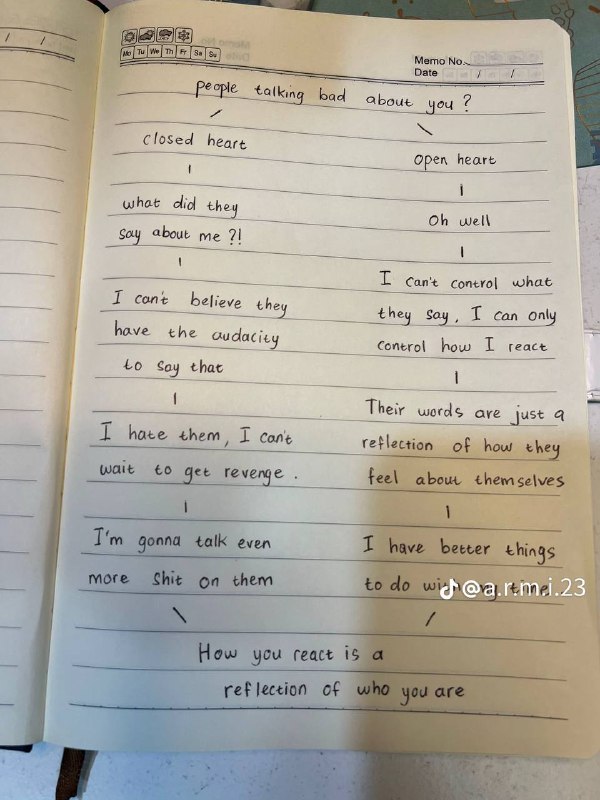 Mo Tu We Th Fr Sa Su
Memo No.
Date / /
people talking bad about you ?
closed heart
what did they
say about me ?!
I can't believe they
have the audacity
to say that
I hate them, I can't
wait to get revenge .
I'm gonna talk even
more shit on them
open heart
Oh well
I can't control what
they say, I can only
control how I react
Their words are just a
reflection of how they
feel about themselves
I have better things
to do with my time
@a.r.m.i.23
How you react is a
reflection of who you are